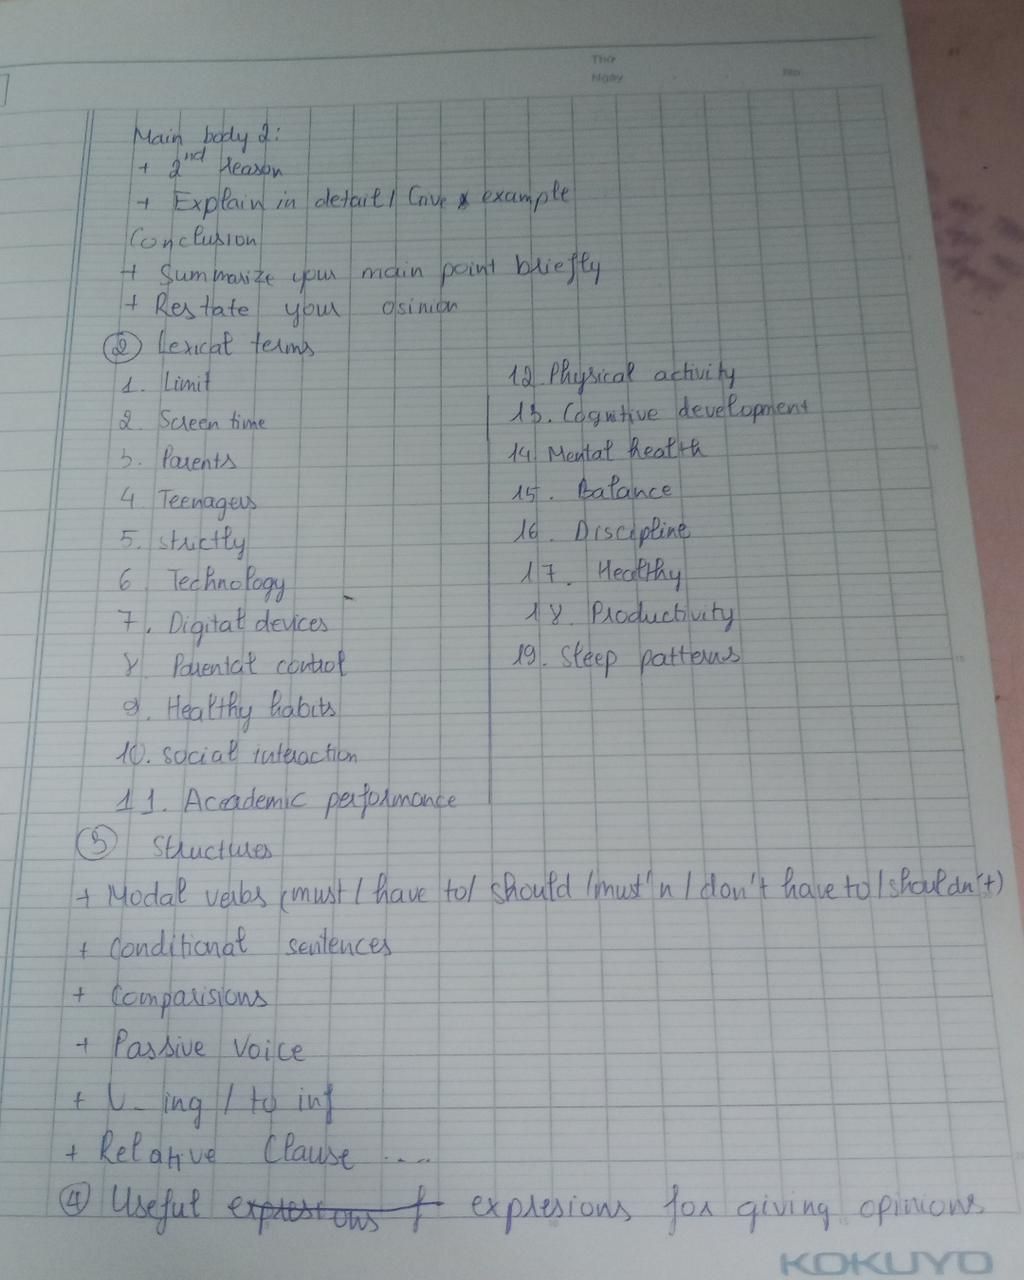 Thứ
Ngày
No.
Main body 2:
+ 2nd reason
+ Explain in detail / Give example
Conclusion
+ Summarize your main point briefly
+ Restate your osinion
② Lexical terms
1. Limit
2. Screen time
3. Parents
4 Teenagers
5. strictly
6 Technology
7. Digital devices
8 Parental control
9. Healthy habits
10. social interaction
11. Academic performance
12. Physical activity
13. Cognitive development
14 Mental health
15. Balance
16. Discipline
17. Healthy
18. Productivity
19. Sleep patterns
③ Structures
+ Modal verbs (must / have to / should / must'n / don't have to / shouldn't)
+ Conditional sentences
+ Comparisions
+ Passive Voice
+ V-ing / to inf
+ Relative Clause ....
④ Useful expresions f expresions for giving opinions
KOKUYO